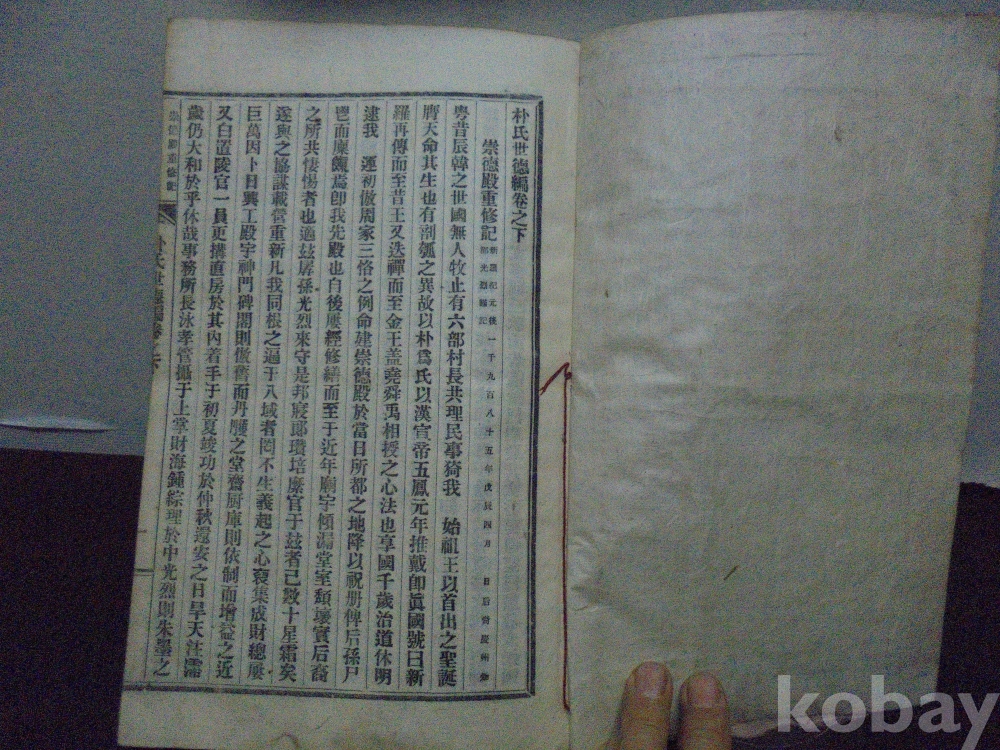 朴氏世德編卷之下
崇德殿重修記
新羅紀元後一千九百八十五年戊辰四月 日后裔慶州
郡 光烈 記
粤昔辰韓之世國無人牧止有六部村長共理民事猗我 始祖王以首出之聖誕
膺天命其生也有剖瓠之異故以朴爲氏以漢宣帝五鳳元年推戴卽眞國號曰新
羅再傳而至昔王又迭禪而至金王盖堯舜禹相授之心法也享國千歲治道休明
逮我 運初倣周家三恪之例命建崇德殿於當日所都之地降以祝册俾后孫尸
鬯而廩餼焉卽我先殿也自後屢經修繕而至于近年廟宇傾漏堂室頹壞實后裔
之所共悽惕者也適玆孱孫光烈來守是邦寢郞瓚培縻官于玆者已數十星霜矣
遂與之協謀載營重新凡我同根之遍于八域者罔不生義起之心裒集成財總屢
巨萬因卜日興工殿宇神門碑閣則倣舊而丹雘之堂齋厨庫則依制而增益之近
又自置陵官一員更搆直房於其內着手于初夏竣功於仲秋還安之日旱天注霈
歲仍大和於乎休哉事務所長泳孝管攝于上掌財海鍾綜理於中光烈則朱墨之
崇德殿重修記
朴氏世德編卷之下
kobay